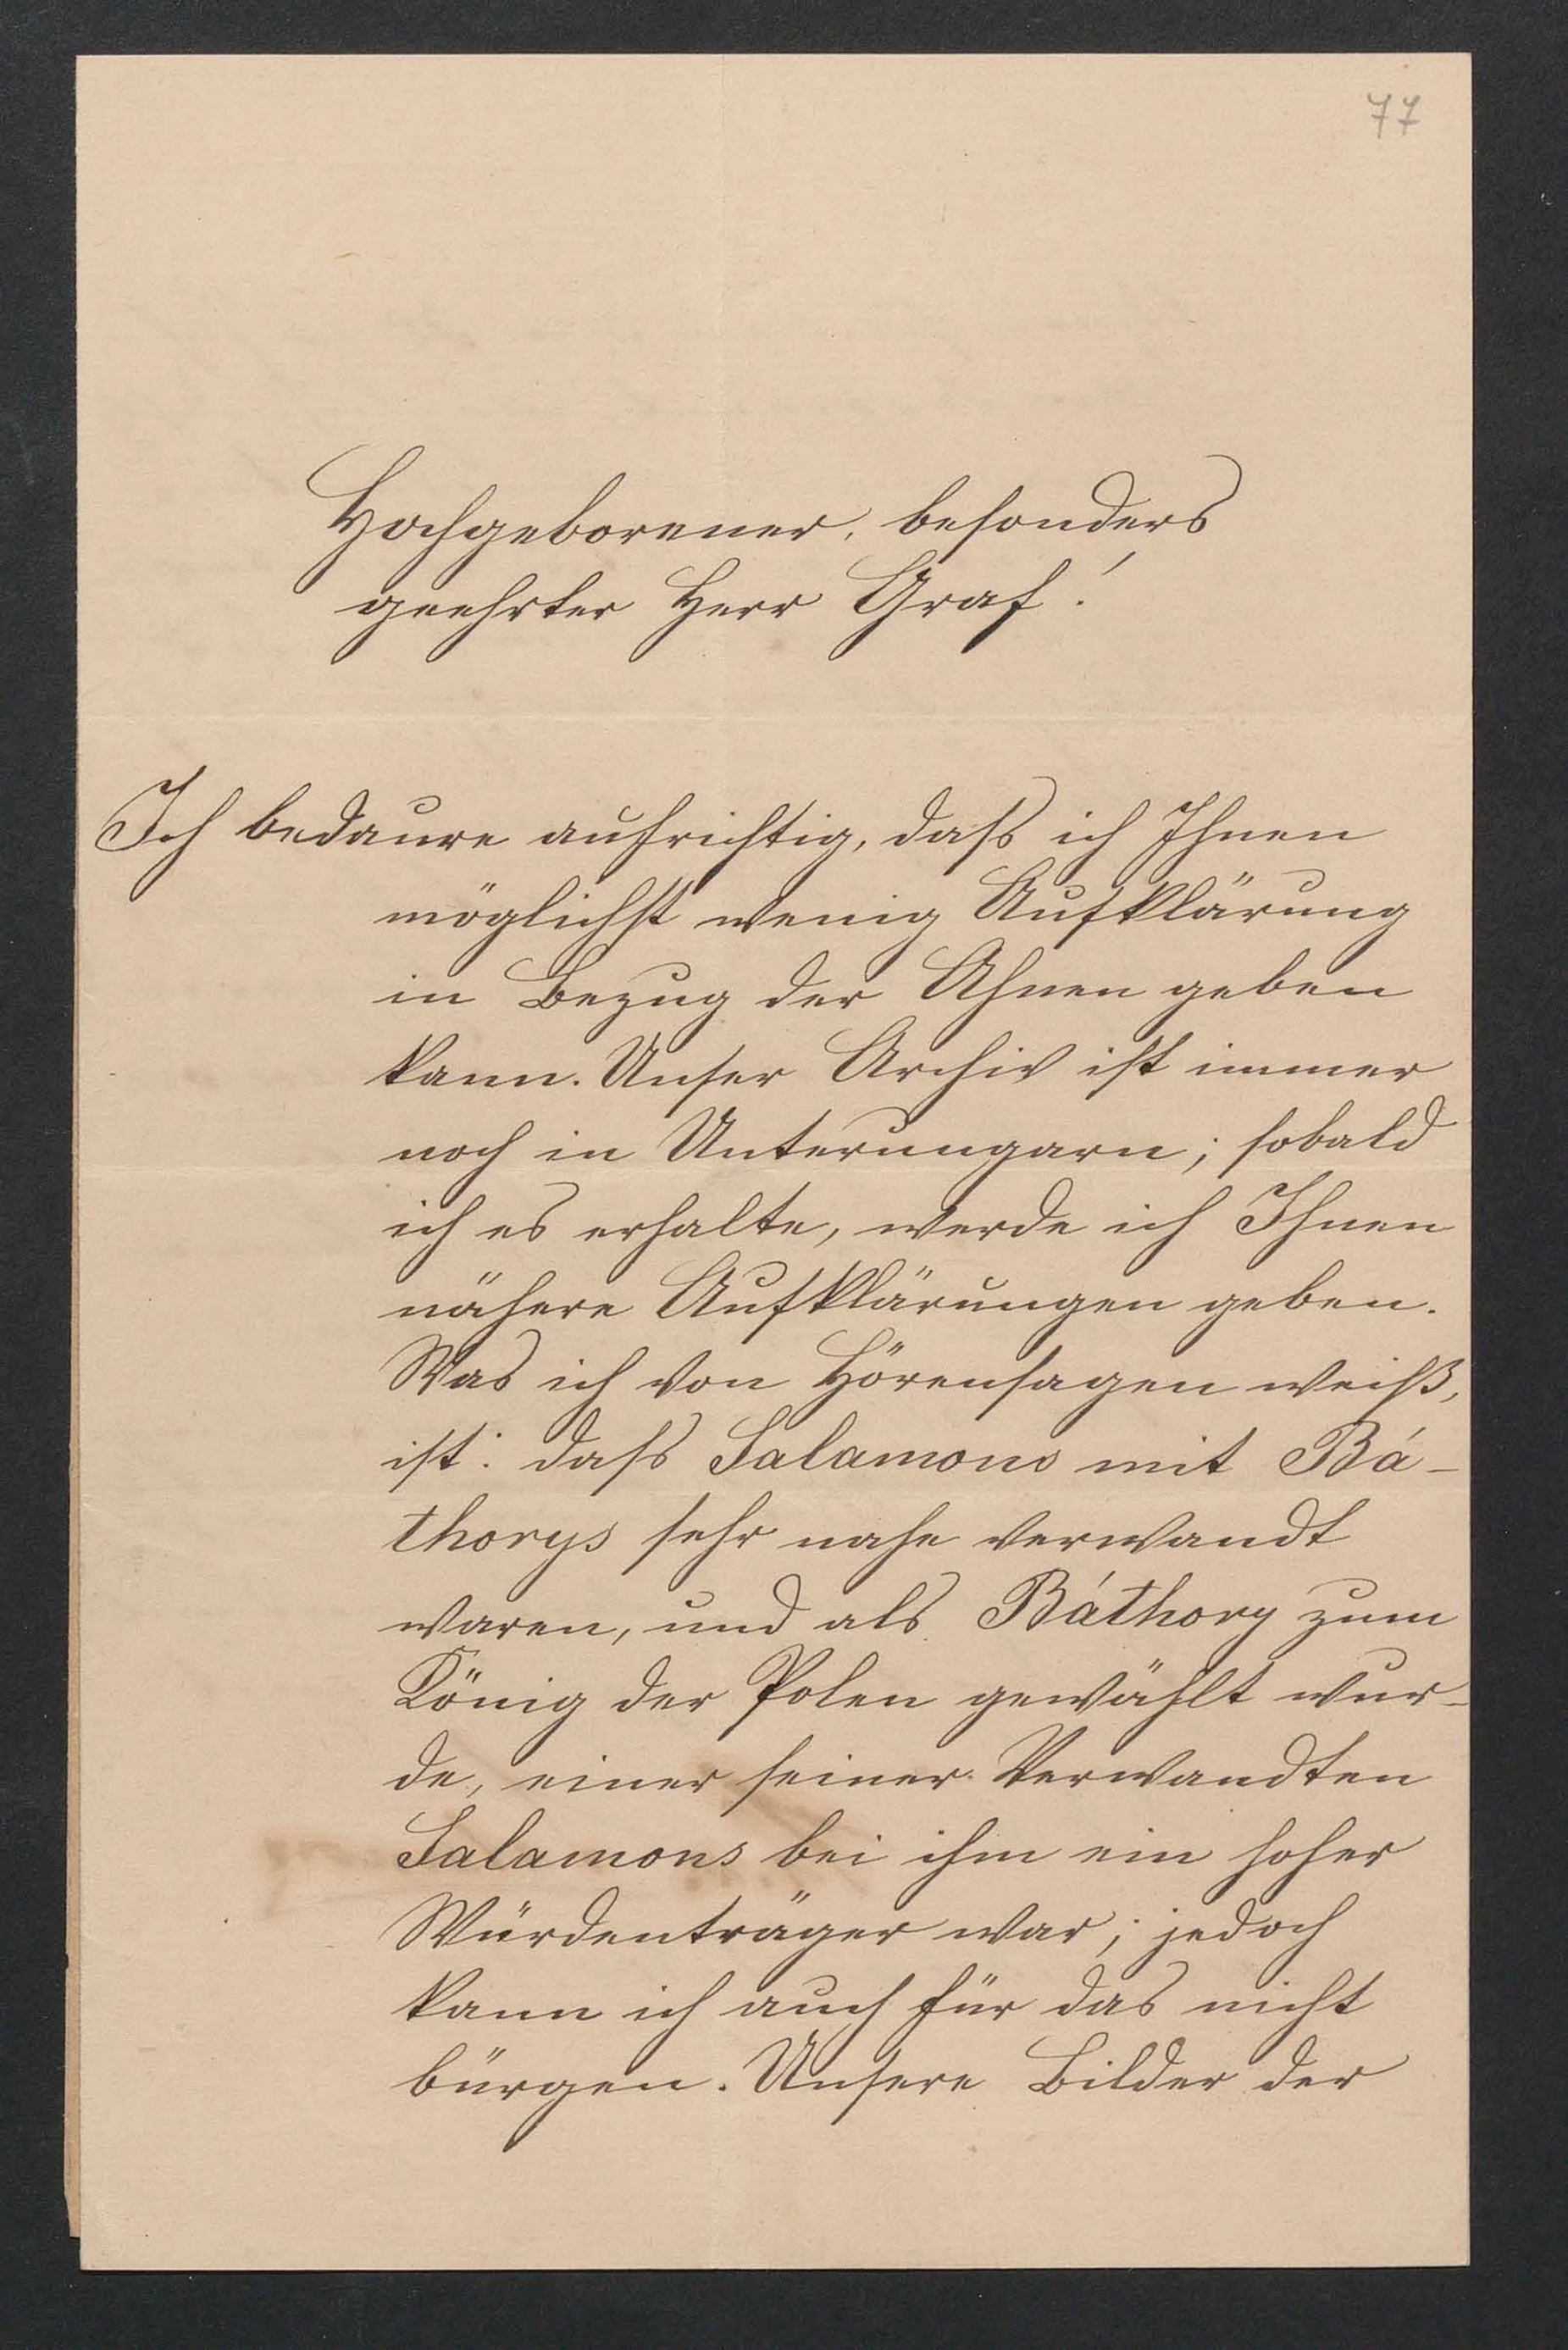 77
Hochgeborener, besonders
geehrter Herr Graf!
Ich bedaure aufrichtig, dass ich Ihnen
möglichst wenig Aufklärung
in Bezug der Ahnen geben
kann. Unser Archiv ist immer
noch in Unterungarn; sobald
ich es erhalte, werde ich Ihnen
nähere Aufklärungen geben.
Was ich von Hörensagen weiß,
ist: dass Salamons mit Bá-
thorys sehr nahe verwandt
waren, und als Báthory zum
König der Polen gewählt wur-
de, einer seiner Verwandten
Salamons bei ihm ein hoher
Würdenträger war; jedoch
kann ich auch für das nicht
bürgen. Unsere Bilder der